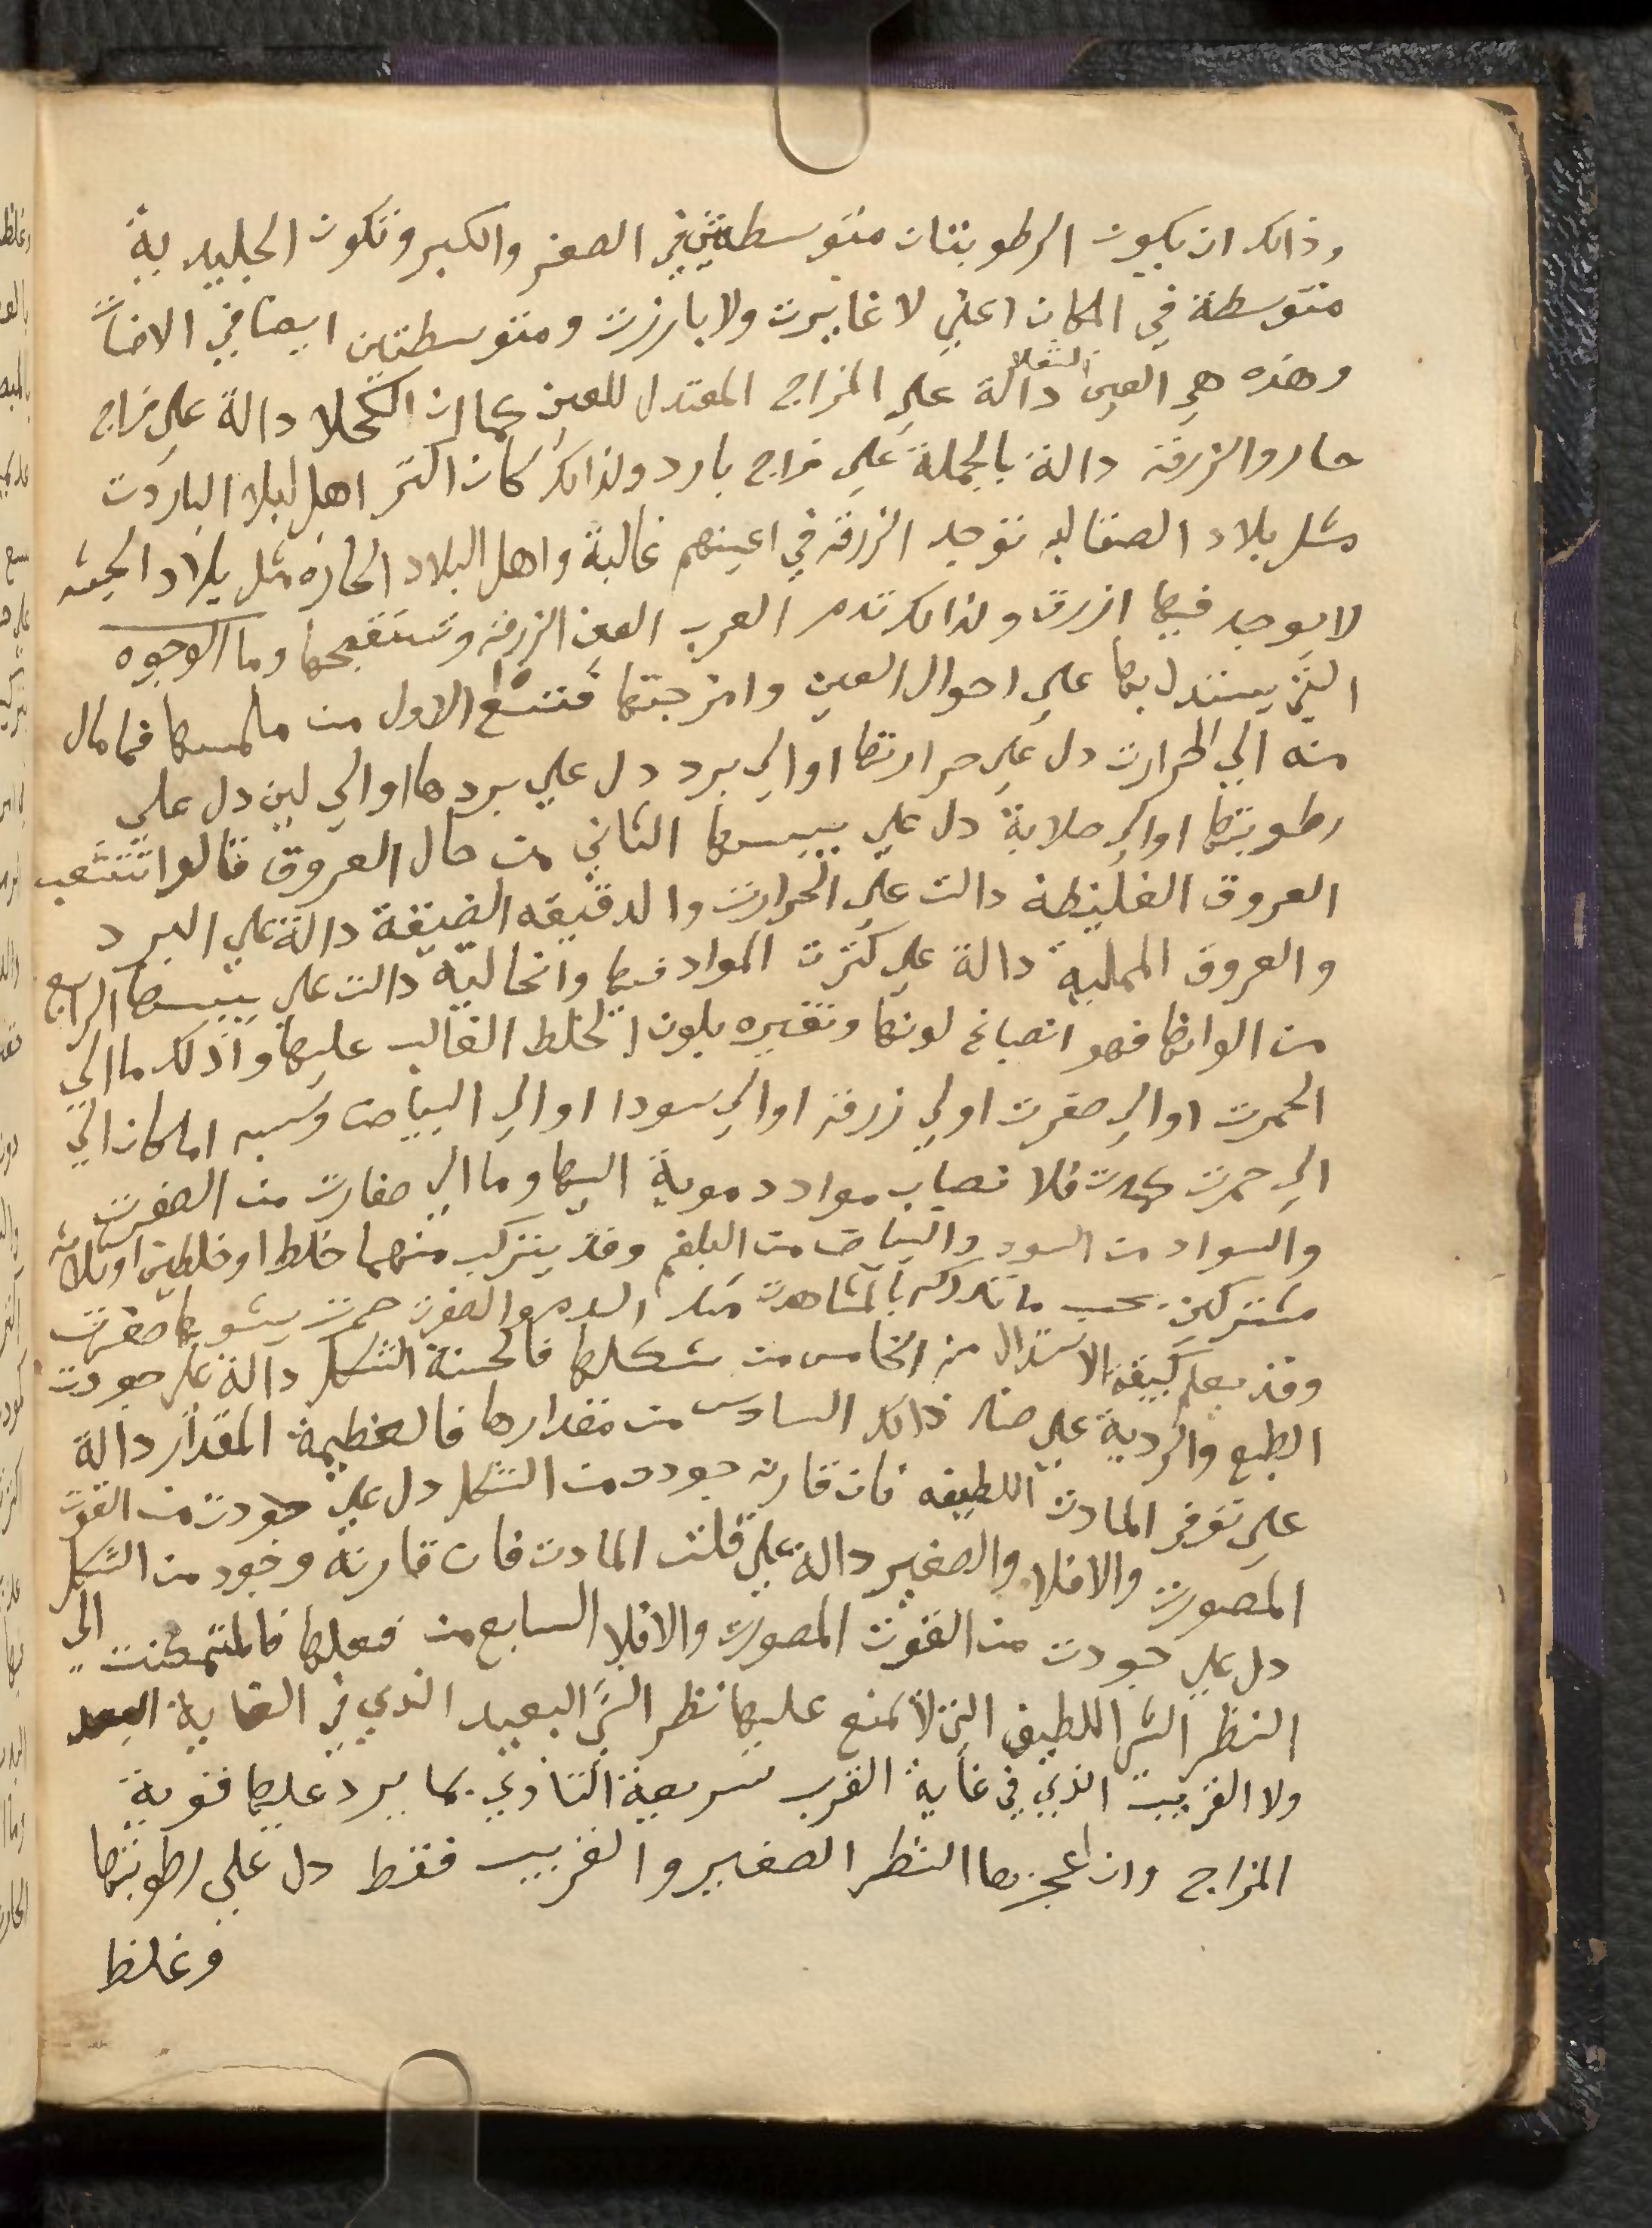 وذالك ان يكون الرطوبتان متوسطتين في الصغر والكبر وتكون الجليديه
متوسطة في المكان اعني لا غايرت ولا بارزت ومتوسطتين ايضا في
وهذه هي العين الشهلا دالة علي المزاج المعتدل للعين كما ان الكحلا دالة علي مزاج
حار والزرقه دالة بالجملة علي مزاج بارد ولذالك كان اكثر اهل البلاد الباردت
مثل بلاد الصقالبه توجد الزرقه في اعينهم غالبة واهل البلاد الحاره مثل بلاد الحبشه
لا يوجد فيها ازرق ولذالك تذم العرب العين الزرقه وتستقبحها وما الوجوه
التي يستدل بها علي احوال العين وامزجتها فتسع الاول من ملمسها فما مال
منه الي الحرارت دل علي حرارتها او الي برد دل علي بردها او الي لين دل علي
رطوبتها او الي صلابة دل علي يبسها الثاني من حال العروق قالوا
العروق الغليظة دالت علي الحرارت والدقيقه الضيقة دالة علي البرد
والعروق المملية دالة علي كثرت المواد فيها والخالية دالت علي يبسها الرابع
من الوانها فهو انصباغ لونها وتغيره بلون الخلط الغالب عليها وذلك ما الي
الحمرت او الي صفرت او لي زرقه او الي سودا او الي البياض وسببه اما كان الي
الي حمرت فلا نصباب مواد دموية اليها وما الي صفارت من الصفرت
والسواد من السود والبياض من البلغم وقد يتركب منهما خلط او خلطين او ثلاثه
مشتركين بحسب ما تدركه بالمشاهدت مثل الدم والصفرت حمرت يشوبها صفرت
وقد يعلم كيفية الاستدلال من الخامس من شكلها فالحسنة الشكل دالة علي جودت
الطبع والردية علي ضد ذالك السادس من مقدارها فالعظيمة المقدار دالة
علي توفر المادت اللطيفه فان قارنه جودت من الشكل دل علي جودت من القوت
المصورت والافلا والصغير دالة علي قلت المادت فان قارنه وجود من الشكل
دل علي جودت من القوت المصورت والافلا السابع من فعلها فالمتمكنت الي
النظر الشي اللطيف التي لا تمنع عليها نظر الشي البعيد الذي في الغاية البعد
ولا القريب الذي في غاية القرب سريعة التاذي بما يرد عليها قوية
المزاج وان اعجزها النظر الصغير والقريب فقط دل علي رطوبتها
وغلظ